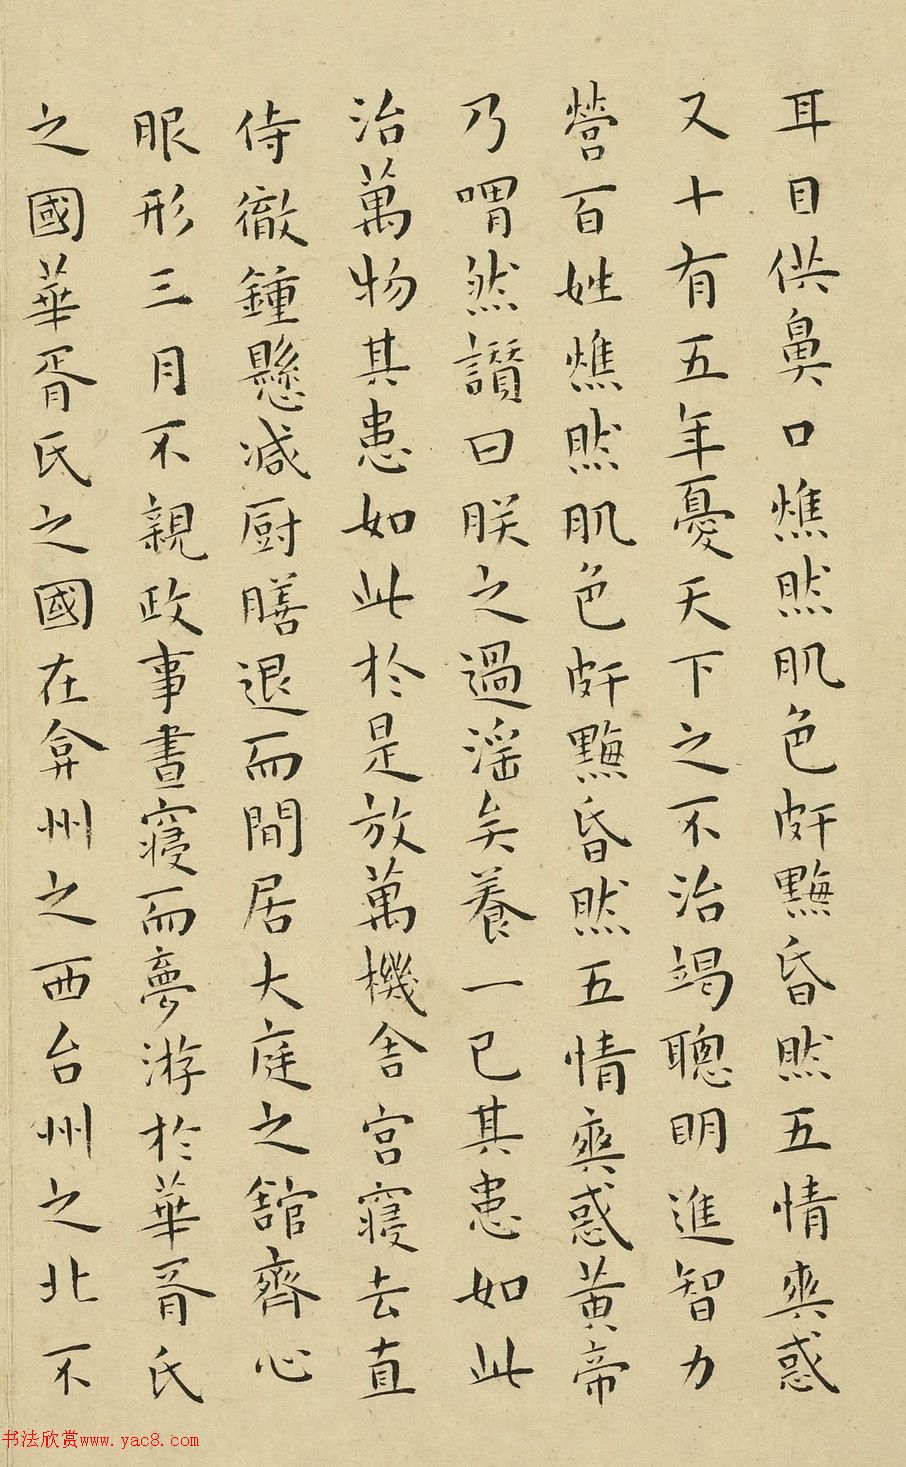 耳目供鼻口燋然肌色皯黣昏然五情爽惑
又十有五年憂天下之不治竭聰明進智力
營百姓燋然肌色皯黣昏然五情爽惑黃帝
乃喟然讃曰朕之過淫矣養一己其患如此
治萬物其患如此於是放萬機舍宮寢去直
侍徹鍾懸減厨膳退而閒居大庭之舘齊心
服形三月不親政事晝寢而夢游於華胥氏
之國華胥氏之國在弇州之西台州之北不
书法欣赏www.yac8.com